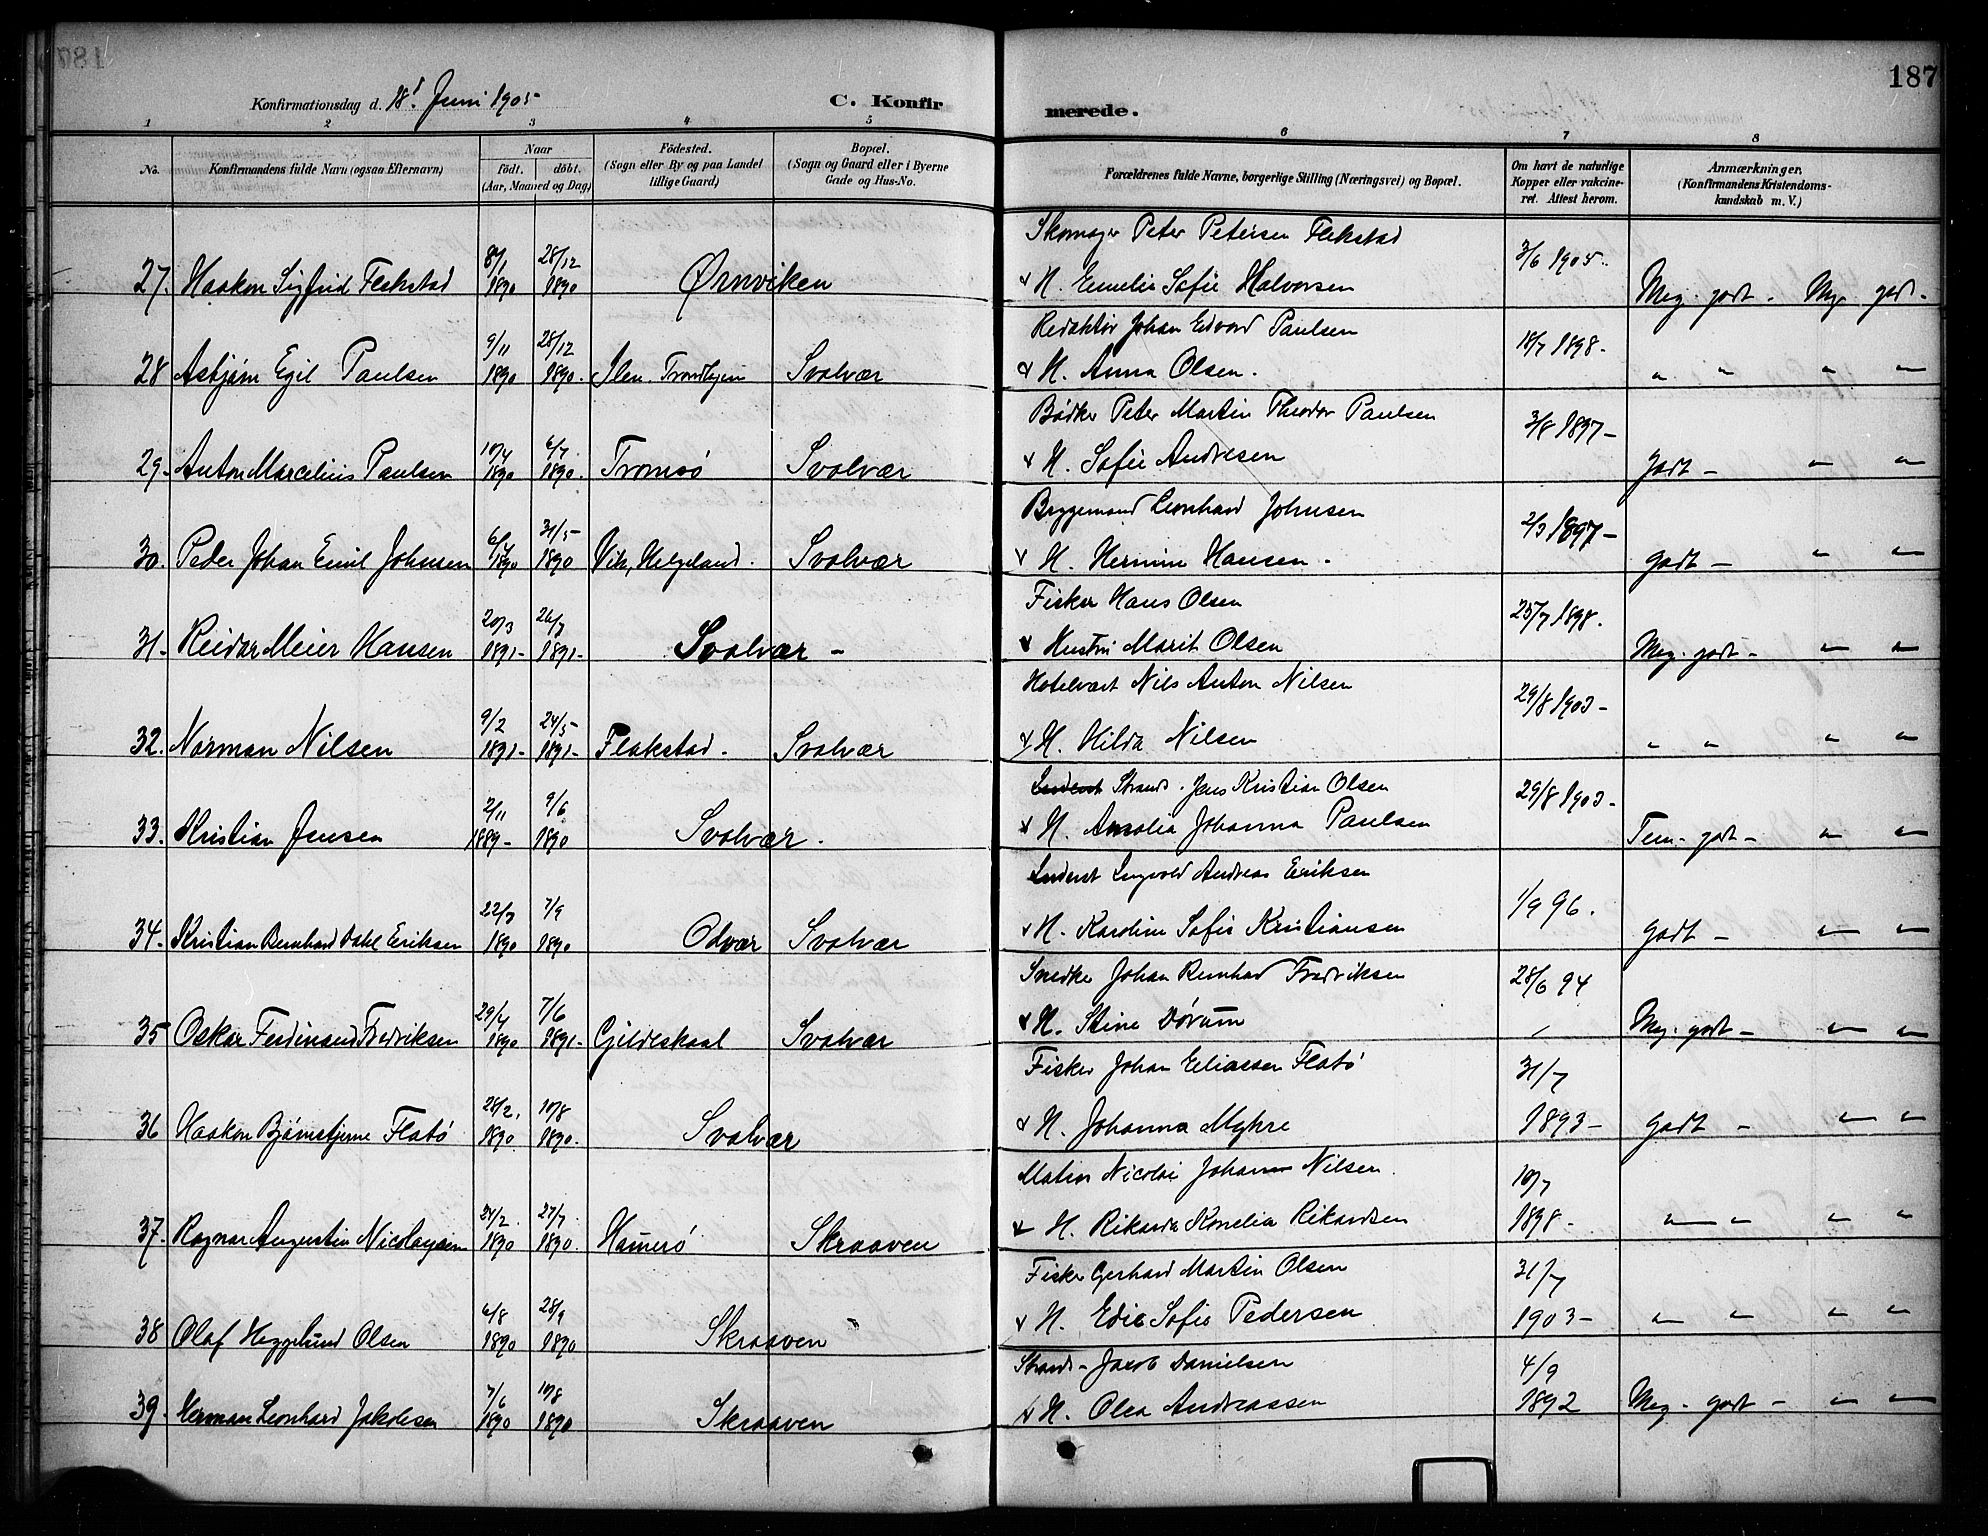 187
Konfirmationsdag d. 18' Juni 1905
C. Konfirmerede.
1 2 3 4 5 6 7 8
No.
Konfirmandens fulde Navn (ogsaa Efternavn)
Naar
født. døbt.
(Aar, Maaned og Dag)
Fødested.
(Sogn eller By og paa Landet
tillige Gaard)
Bopæl.
(Sogn og Gaard eller i Byerne
Gade og Hus-No.
Forældrenes fulde Navne, borgerlige Stilling (Næringsvei) og Bopæl.
Om havt de naturlige
Kopper eller vakcine-
ret. Attest herom.
Anmærkninger.
(Konfirmandens Kristendoms-
kundskab m. V.)
Skomager Peter Petersen Flekstad
8/1 28/12 3/6 1905.
27. Haakon Sigfrid Flekstad 1890 1890 Ørnviken & H. Emelie Sofie Halvorsen Meg. godt - Meg. godt -
Redaktør Johan Edvard Paulsen
9/11 28/12 18/7 1898.
28 Asbjørn Egil Paulsen 1890 1890. Ilen. Trondhjem Svolvær & H. Anna Olsen. " " " "
Bødker Peter Martin Theodor Paulsen
10/4 6/7 3/8 1897-
29. Anton Marcelius Paulsen 1890 1890. Tromsø Svolvær & H. Sofie Andresen godt - " "
Bryggemand Leonhard Johnsen
6/4 31/5 2/3 1897-
30. Peder Johan Emil Johnsen 1890 1890 Vik, Helgeland. Svolvær & H. Hermine Hansen. godt - " "
Fisker Hans Olsen
20/3 26/7 25/7 1898.
31. Reidar Meier Hansen 1891- 1891- Svolvær - & Hustru Marit Olsen Meg. godt - " "
Hotelvært Nils Anton Nilsen
9/2 24/5 29/8 1903-
32. Norman Nilsen 1891- 1891- Flakstad. Svolvær & H. Hilda Nilsen " " " "
Strands. Jens Kristian Olsen
2/11 9/6 29/8 1903-
33. Kristian Jensen 1889- 1890 Svolvær. & H. Amalia Johanna Paulsen Tem. godt - " "
Inderst Ingvold Andreas Eriksen
22/7 7/9 1/9 96.
34. Kristian Bernhard Dahl Eriksen 1890 1890 Odvær Svolvær & H. Karoline Sofie Kristiansen godt - " "
Snedker Johan Bernhard Fredriksen
29/4 7/6 28/6 94
35 Oskar Ferdinand Fredriksen 1890 1891- Gildeskaal Svolvær & H. Stine Dørum Meg. godt - " "
Fisker Johan Eliassen Flatø
28/2. 10/8 31/7
36 Haakon Bjørnstjerne Flatø 1890. 1890. Svolvær & H. Johanna Myhre 1893- godt - " "
Matros Nicolai Johan Nilsen.
24/2. 27/7. 10/7
37. Ragnar Augustin Nicolaysen 1890 1890. Hamerø Skraaven & H. Rikarda Kornelia Rikardsen 1898- " " " "
Fisker Gerhard Martin Olsen
6/8 28/9 31/7
38 Olaf Heggelund Olsen 1890 1890 Skraaven & H. Edie Sofie Pedersen 1903- " " " "
Strands- Jacob Danielsen
7/6 10/8 4/9
39. Herman Leonhard Jakobsen 1890 1890 Skraaven & H. Olea Andreassen 1892 Meg. godt - " "